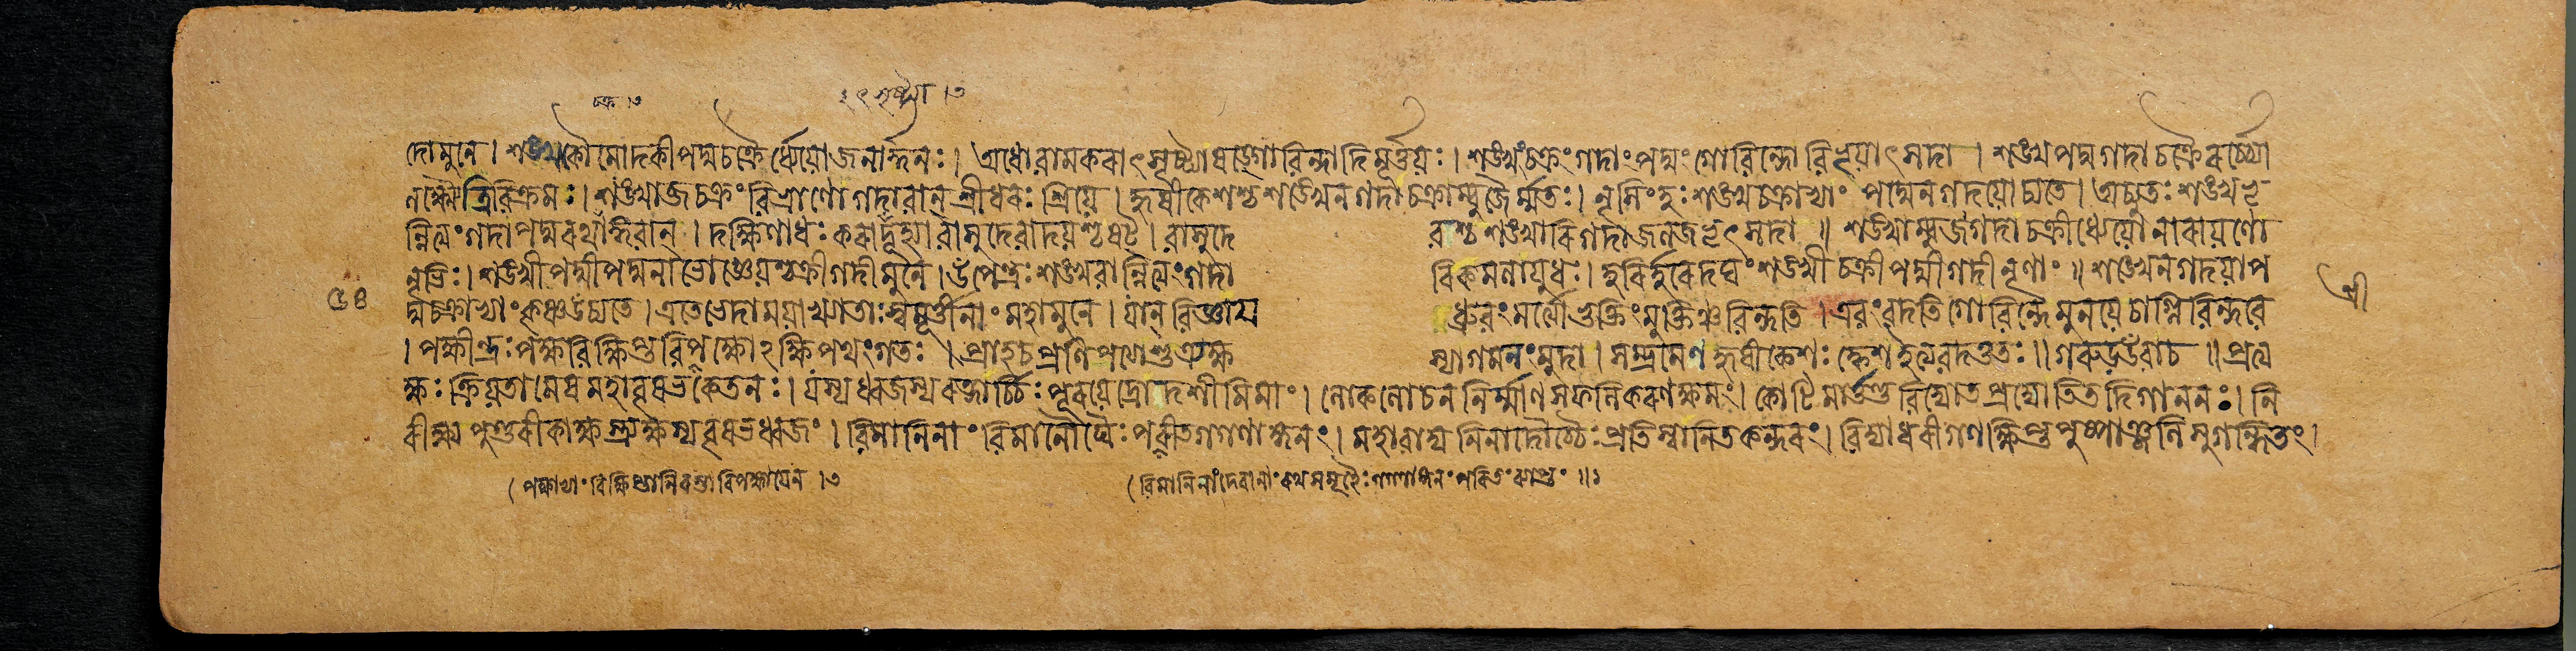 চক্র ।১
১২ সৃষ্ট্যা ।১
দোমুনে । শঙ্খকৌমোদকীপদ্মচক্রৈর্ধ্যেয়োজনার্দ্দনঃ । অধোবামকরাৎসৃষ্ট্যাষড়্গোবিন্দাদিমূর্ত্তয়ঃ । শঙ্খংচক্রংগদাংপদ্মংগোবিন্দোবিভৃয়াৎসদা । শঙ্খপদ্মগদাচক্রৈরর্চ্যো
লক্ষ্ম্যৈত্রিবিক্রমঃ । শঙ্খাব্জচক্রংবিভ্রাণোগদাবান্শ্রীধরঃশ্রিয়ে । হৃষীকেশশ্চশঙ্খেনগদাচক্রাম্বুজৈর্ম্মতঃ । নৃসিংহঃশঙ্খচক্রাভ্যাং পদ্মেনগদয়োচ্যতে । অচ্যুতঃশঙ্খভৃ
ন্নিত্যংগদাপদ্মরথাঙ্গবান্ । দক্ষিণাধঃকরাদ্ভূত্যাবাসুদেবাদয়শ্চষট্ । বাসুদে বশ্চশঙ্খারিগদাজলজভৃৎসদা ॥ শঙ্খাম্বুজগদাচক্রীধ্যেয়োনারায়ণো
নৃভিঃ । শঙ্খীপদ্মীপদ্মনাভোজ্ঞেয়শ্চক্রীগদীমুনে । উপেন্দ্রঃশঙ্খবান্নিত্যংগদা রিকমলায়ুধঃ । হরির্হরেদঘংশঙ্খীচক্রীপদ্মীগদীনৃণাং ॥ শঙ্খেনগদয়াপ
দ্মচক্রাভ্যাংকৃষ্ণউচ্যতে । এতেভেদাময়াখ্যাতাঃস্বমূর্ত্তীনাংমহামুনে । যান্বিজ্ঞায় ধ্রুবংমর্ত্যোভুক্তিংমুক্তিঞ্চবিন্দতি । এবংবদতিগোবিন্দেমুনয়েচাগ্নিবিন্দবে
। পক্ষীন্দ্রঃপক্ষবিক্ষিপ্তবিপক্ষোঽক্ষিপথংগতঃ । প্রাহচপ্রণিপত্যেশত্র্যক্ষ স্যাগমনংমুদা । সম্ভ্রমেণহৃষীকেশঃক্বেশইত্যবদত্ততঃ ॥ গরুড়উবাচ ॥ প্রত্য
ক্ষঃক্রিয়তামেষমহাবৃষভকেতনঃ । যস্যধ্বজস্যরত্নার্চ্চিঃপূরয়েদ্রোদসীমিমাং । লোকলোচননির্ম্মাণসফলীকরণক্ষমং । কোটিমার্ত্তণ্ডবিদ্যোতপ্রদ্যোতিতদিগাননঃ । নি
রীক্ষ্যপুণ্ডরীকাক্ষস্ত্র্যক্ষস্যবৃষভধ্বজং । বিমানিনাংবিমানৌঘৈঃপরীতগগণাঙ্গনং । মহাবাদ্যনিনাদৌঘৈঃপ্রতিস্বানিতকন্দরং । বিদ্যাধরীগণক্ষিপ্তপুষ্পাঞ্জলিসুগন্ধিতং ।
বিমানিনাংদেবানাংরথসমূহৈঃগগণাঙ্গনংপরিতংব্যাপ্তং ॥১
শ্রী